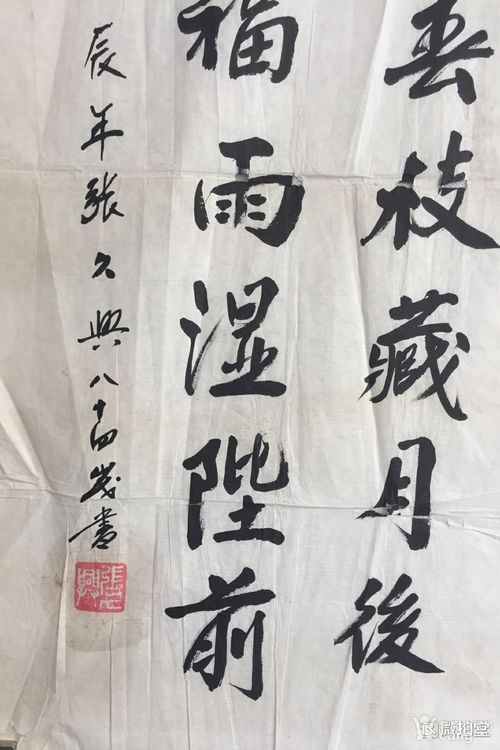 春枝藏月後
福雨湿陛前
辰年張久興八十四岁書
張久興
微拍堂